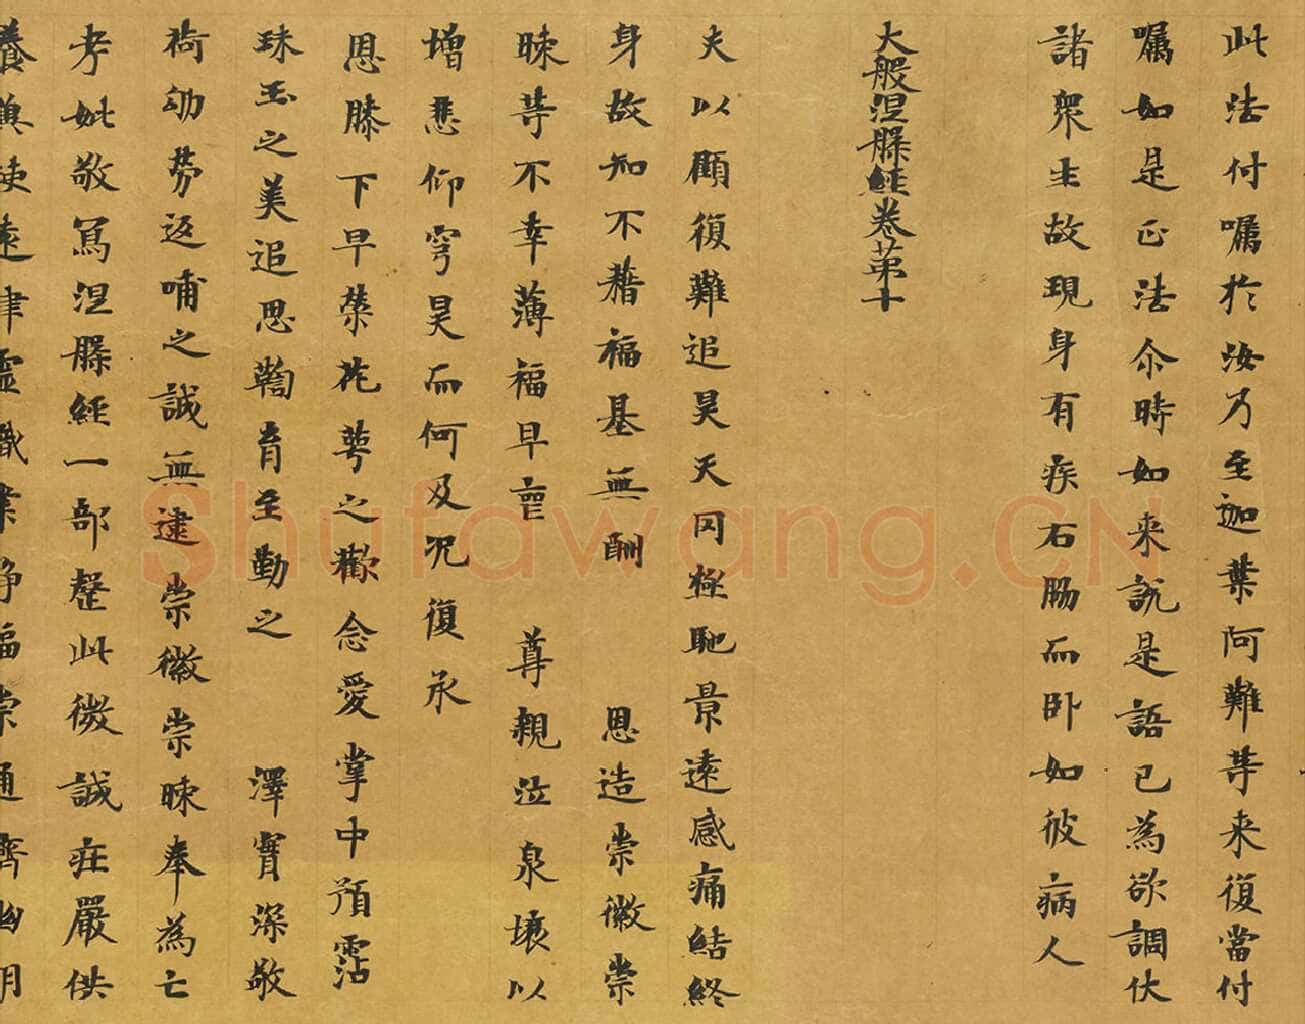 此法付嘱於汝乃至迦葉阿難等来復當付
嘱如是正法尒時如来說是語已為欲調伏
諸衆生故現身有疾右脇而卧如彼病人
大般涅槃經卷苐十
夫以顧復難追昊天罔極馳景遠感痛結終
身故知不藉福基無酬 恩造崇徽崇
暕等不幸薄福早 尊親泣泉壤以
增悲仰穹昊而何及况復承
恩膝下早榮花萼之歡念愛掌中預霑
珠玉之美追思鞫育至勤之 澤實深敬
荷劬勞返哺之誠無逮崇徽崇暕奉為亡
考妣敬寫涅槃經一部罄此微誠莊嚴供
養兼使遠津靈識業淨福崇通齊幽明
Shufawang.CN